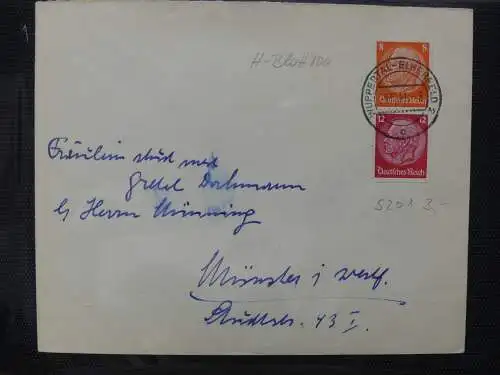 H-Blatt 100
8 8
Deutsches Reich
WUPPERTAL-ELBERFELD 2
c
12 12
Deutsches Reich
S 201 3.-
Fräulein stud med
Gretel Dochmann
b/ Herrn Mönning
Münster i. Westf.
43 I.